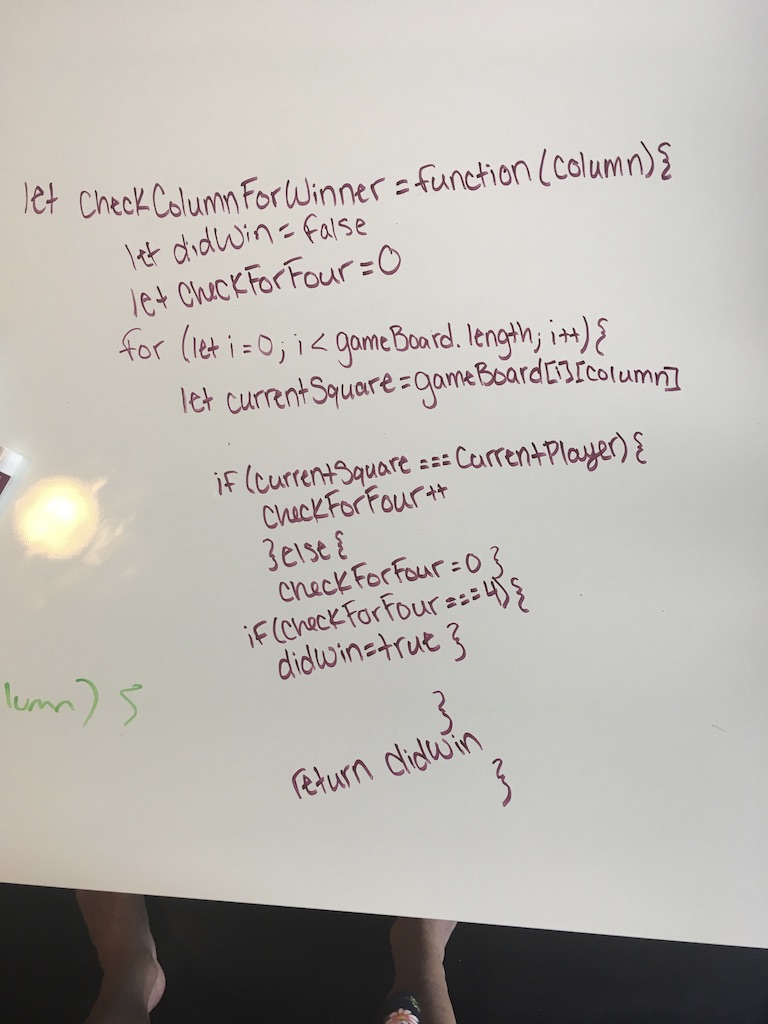 let checkColumnForWinner = function (column) {
let didWin = false
let checkForFour = 0
for (let i = 0; i < gameBoard.length; i++) {
let currentSquare = gameBoard[i][column]
if (currentSquare === currentPlayer) {
checkForFour ++
} else {
checkForFour = 0 }
if (checkForFour === 4) {
didWin = true }
lumn) {
}
return didWin
}